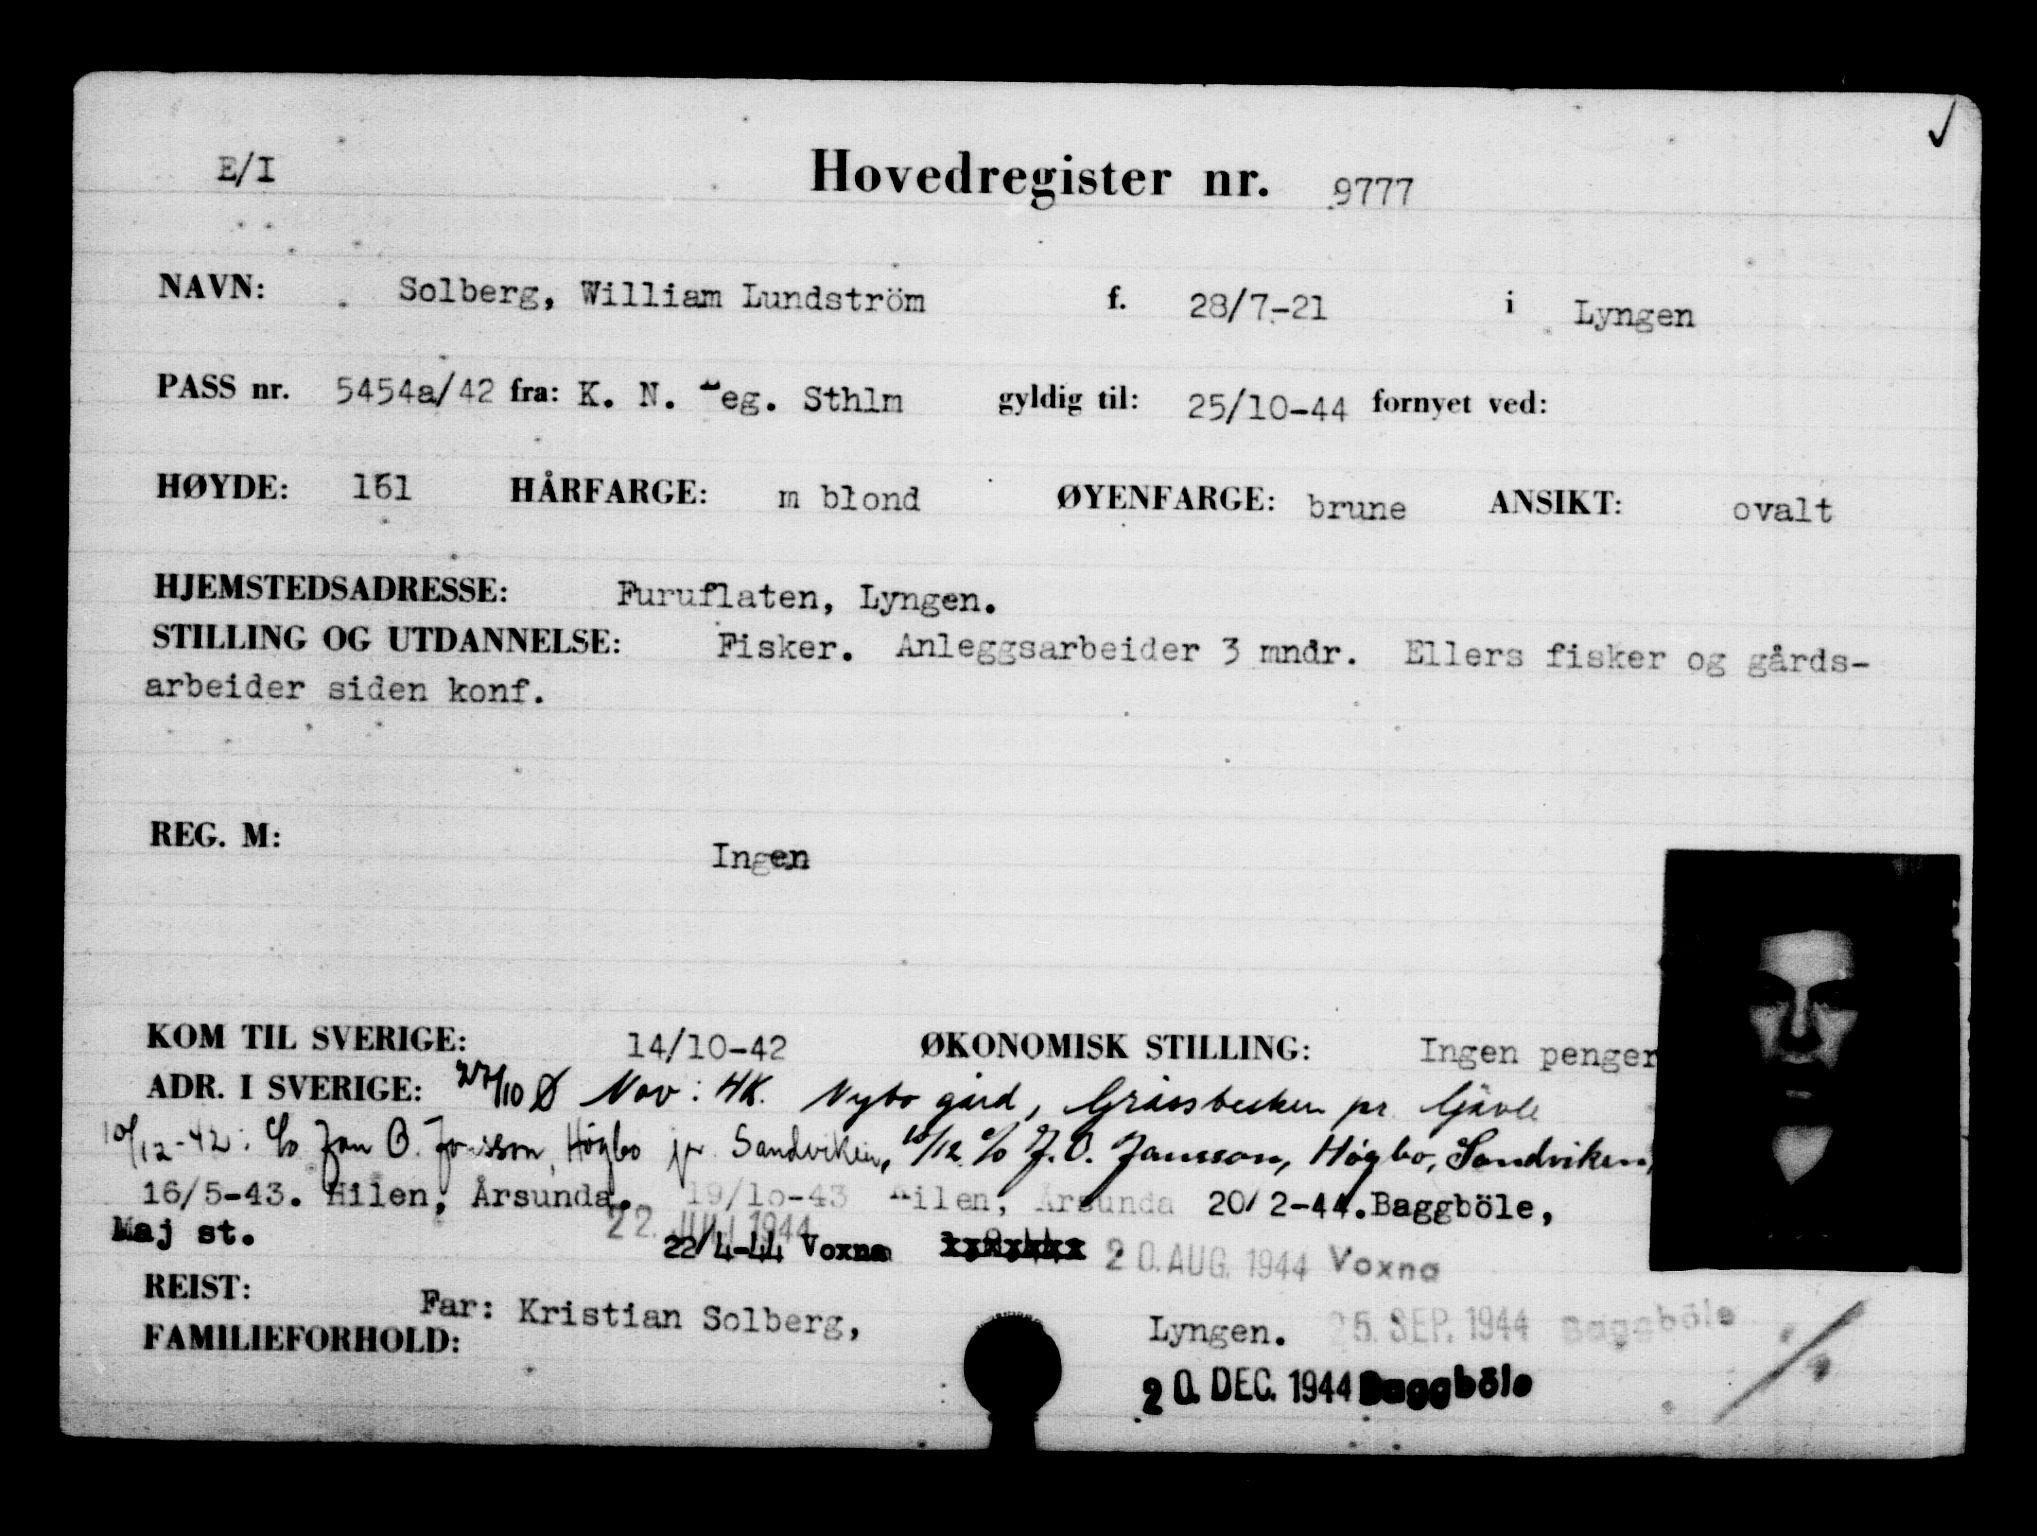 E/I
Hovedregister nr. 9777
NAVN: Solberg, William Lundström f. 28/7-21 i Lyngen
PASS nr. 5454a/42 fra: K. N. Leg. Sthlm gyldig til: 25/10-44 fornyet ved:
HØYDE: 161 HÅRFARGE: m blond ØYENFARGE: brune ANSIKT: ovalt
HJEMSTEDSADRESSE: Furuflaten, Lyngen.
STILLING OG UTDANNELSE: Fisker. Anleggsarbeider 3 mndr. Ellers fisker og gårds-
arbeider siden konf.
REG. M: Ingen
KOM TIL SVERIGE: 14/10-42 ØKONOMISK STILLING: Ingen penger
ADR. I SVERIGE: 27/10 Ø Nov: HK. Nybo gård, pr Gävle
10/12-42: c/o Jan O. Jonsson, Högbo pr Sandviken, 10/12 c/o J.O. Jansson, Högbo, Sandviken,
16/5-43. Hilen, Årsunda. 19/10-43 Hilen, Årsunda 20/2-44. Baggböle,
Maj st. 22. 1944 22/4-44 Voxna 20. AUG. 1944 Voxna
REIST:
Far: Kristian Solberg, Lyngen. 25. SEP. 1944 Baggböle
FAMILIEFORHOLD:
20. DEC. 1944 Baggböle